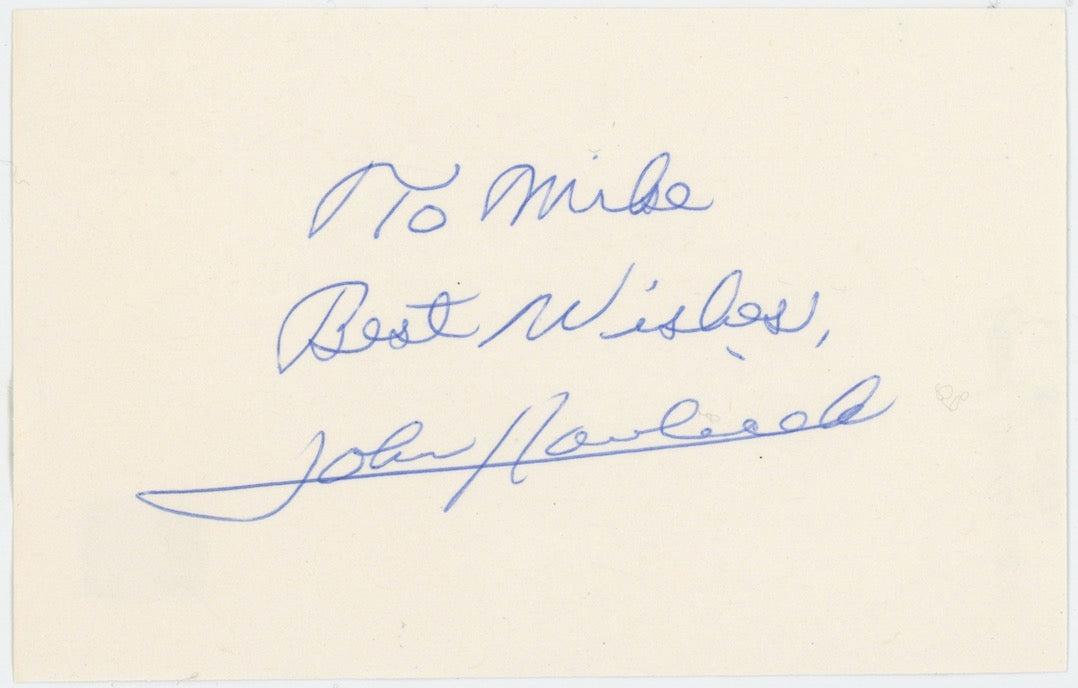 To Mike
Best Wishes,
John Havlicek